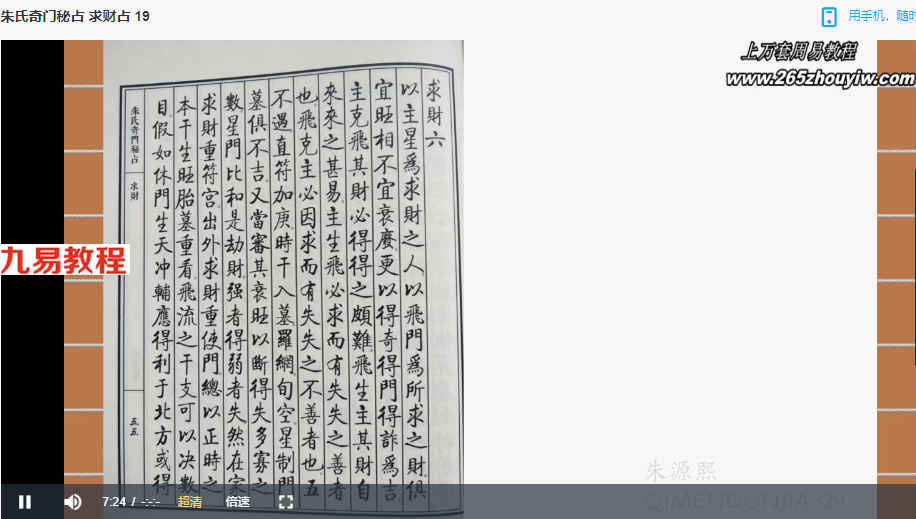 朱氏奇门秘占 求财占 19
用手机，随时
上万套周易教程
www.265zhouyiw.com
九易教程
求財六
以主星爲求財之人以飛門爲所求之財俱
宜旺相不宜衰廢更以得奇得門得詐爲吉
主克飛其財必得得之頗難飛生主其財自
來來之甚易主生飛必求而有失失之善者
也飛克主必因求而有失失之不善者也五
不遇直符加庚時干入墓羅網旬空星制門
墓俱不吉又當審其衰旺以斷得失多寡之
數星門比和是劫財强者得弱者失然在家
求財重符宮出外求財重使門總以正時之
本干生旺胎墓重看飛流之干支可以决數
目假如休門生天冲輔應得利于北方或得
朱氏奇門秘占
求財
五五
朱源熙
QIMENDUNJIA-QY
7:24 / -:-:-
超清
倍速